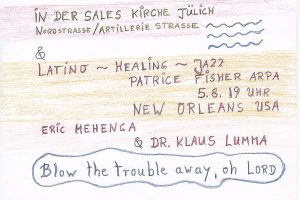 IN DER SALES KIRCHE JÜLICH
NORDSTRASSE/ARTILLERIE STRASSE
&
LATINO ~ HEALING ~ JAZZ
PATRICE FISHER ARPA
5.8. 19 UHR
NEW ORLEANS USA
ERIC MEHENGA
& DR. KLAUS LUMMA
Blow the trouble away, oh LORD